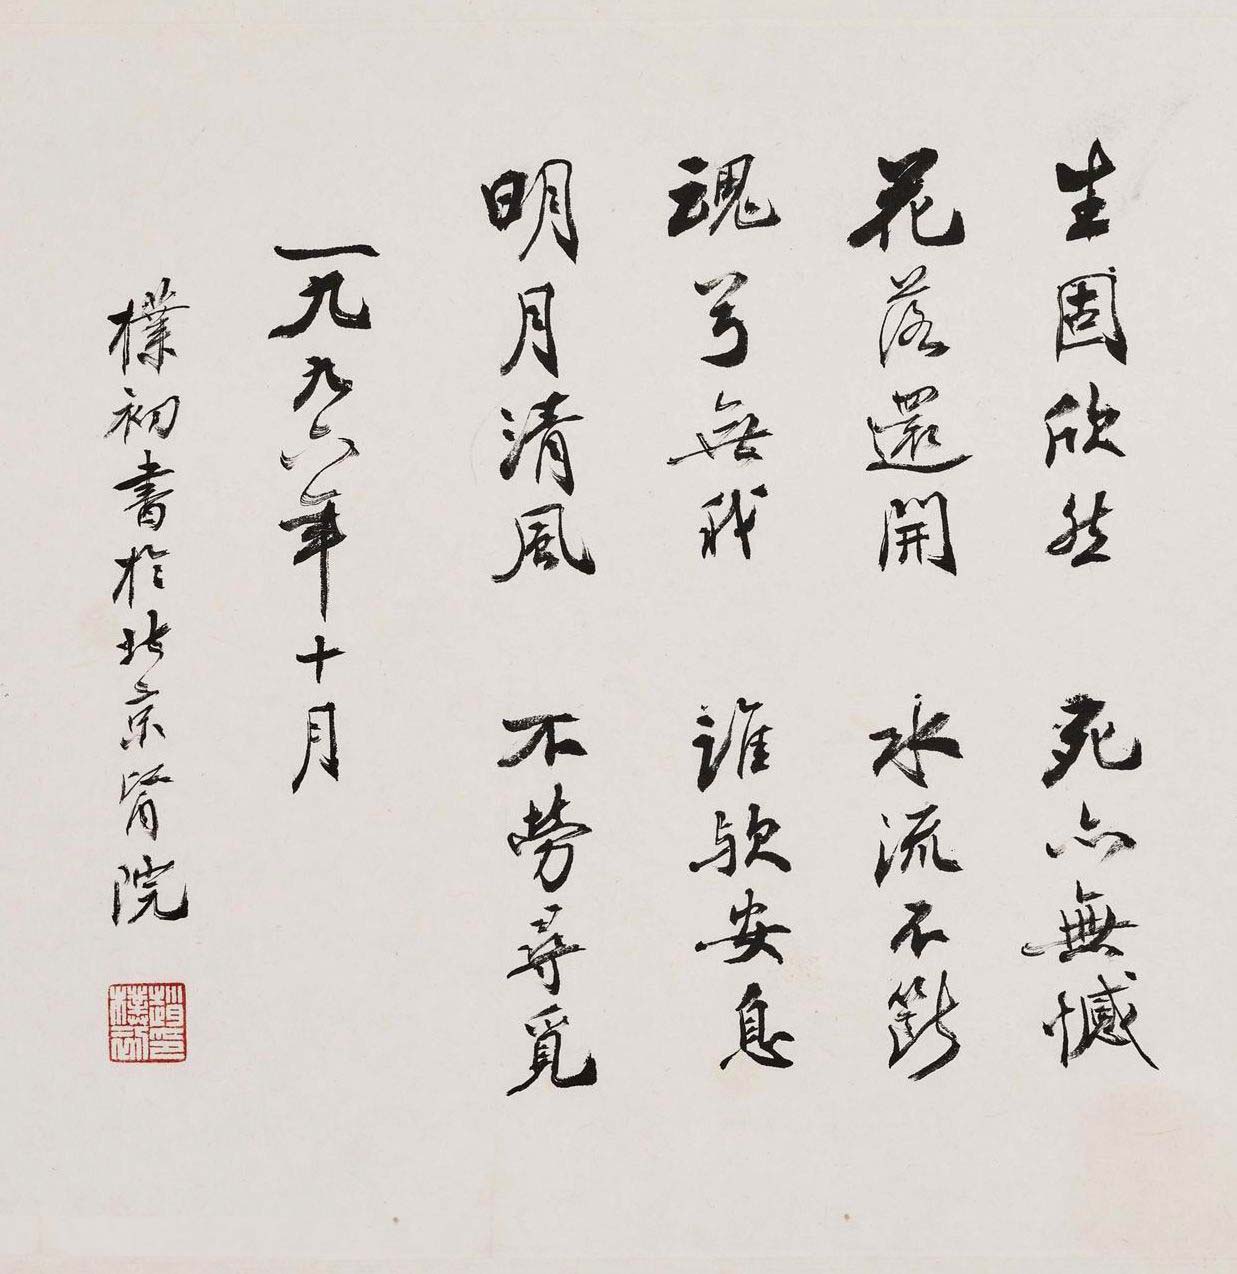 生固欣然 死亦無憾
花落還開 水流不斷
魂兮無我 誰歟安息
明月清風 不勞尋覓
一九九六年十月
樸初書於北京醫院
趙樸初印